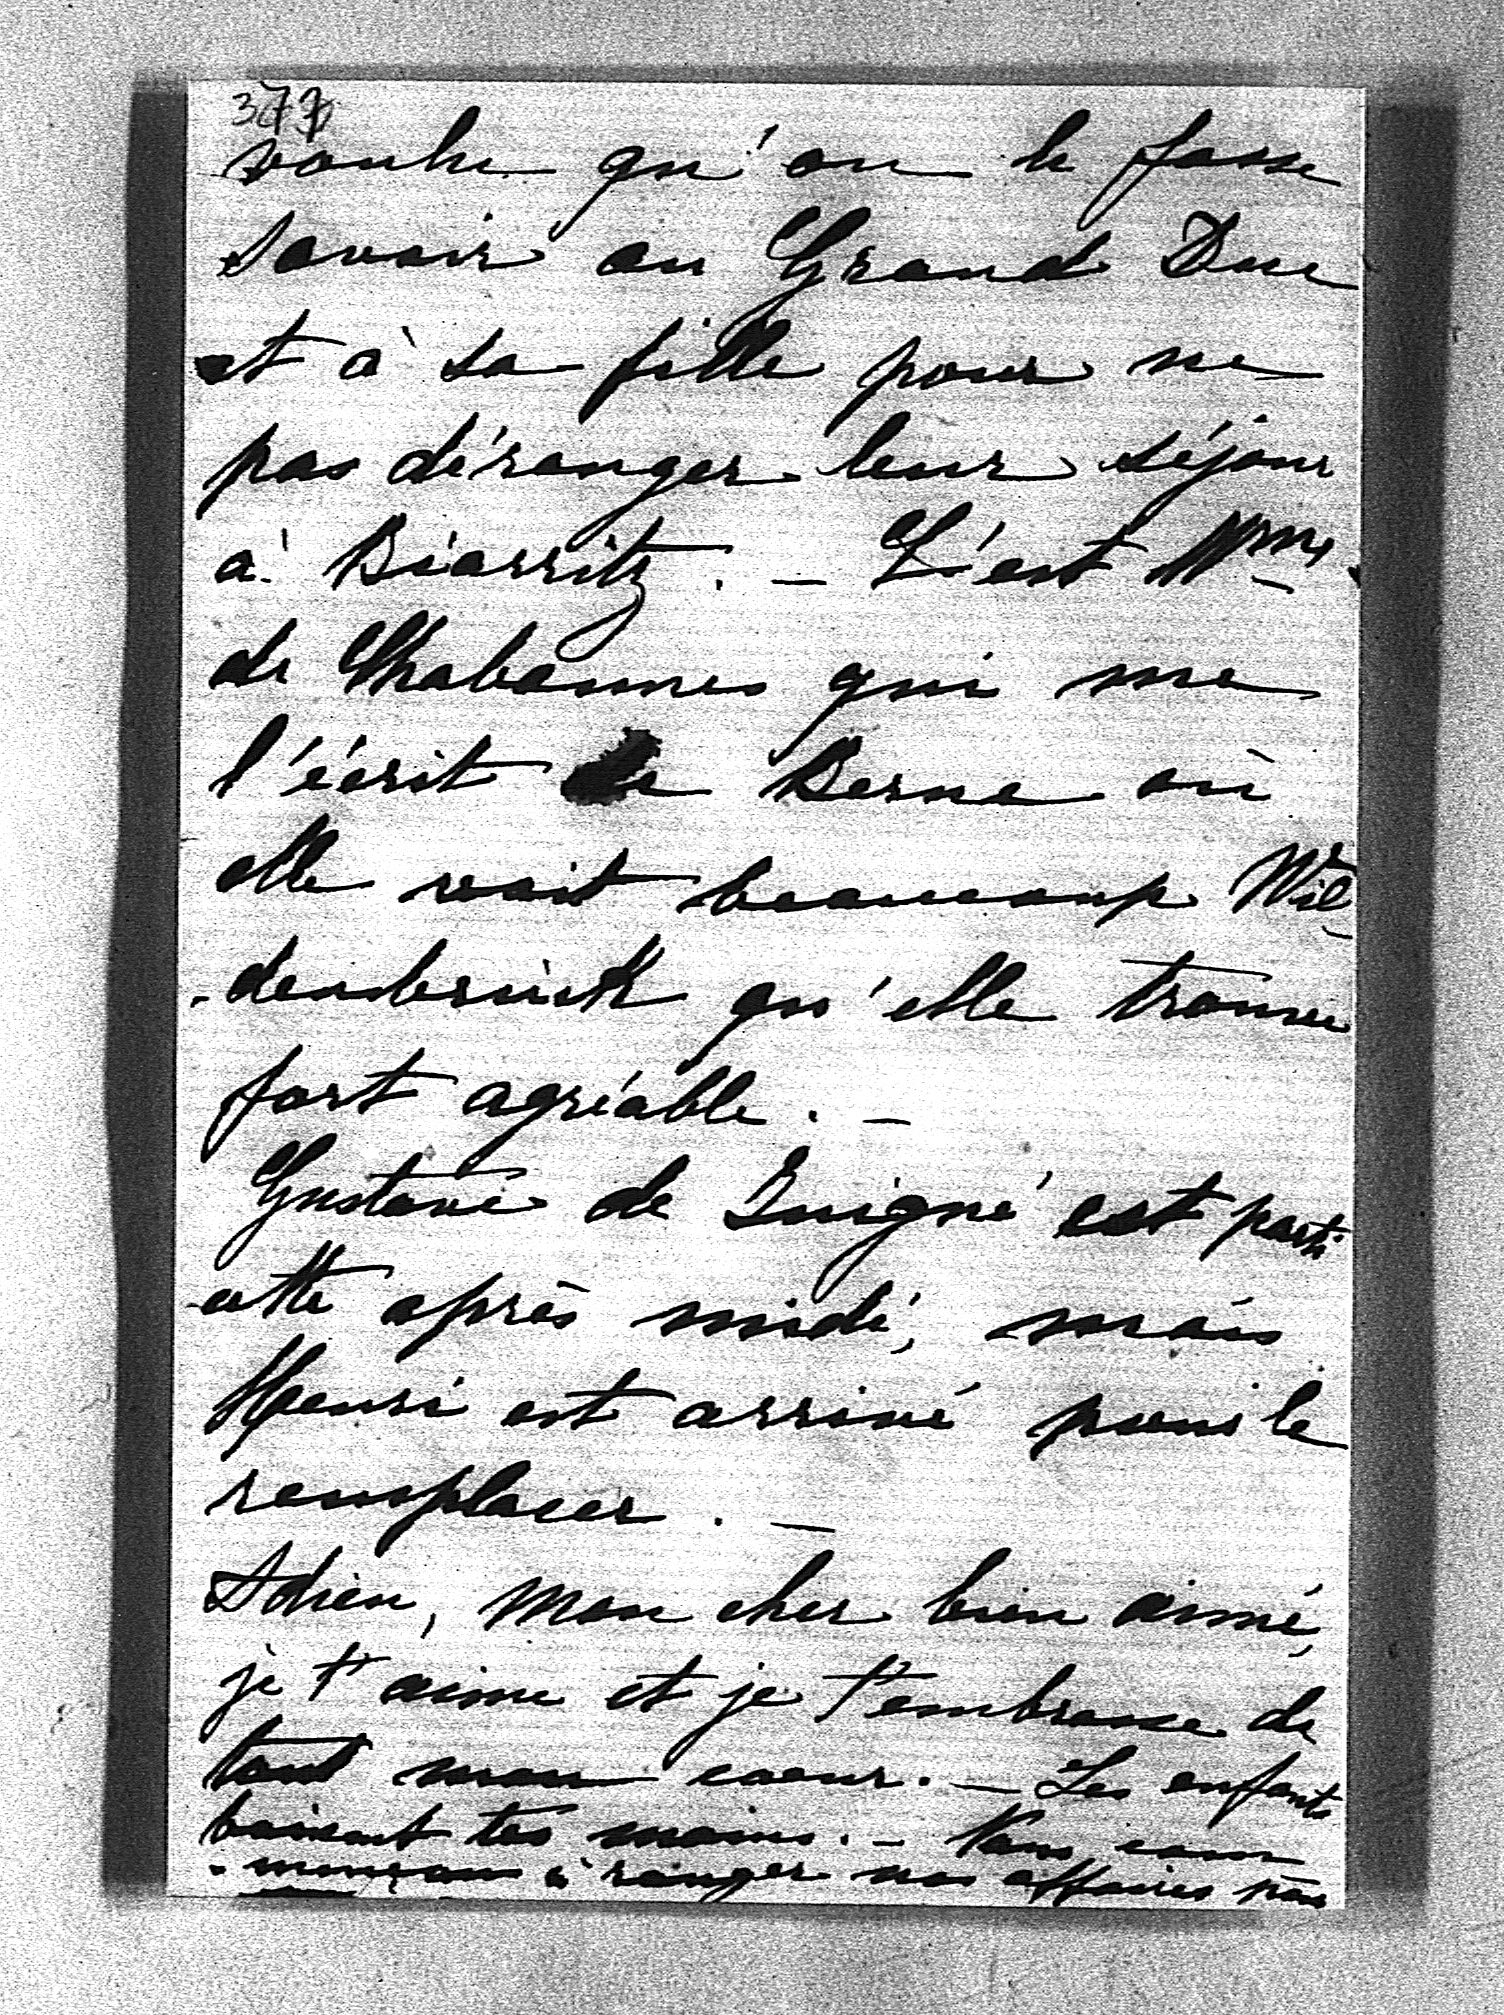 voulu qu'on le fasse
savoir au Grand Duc
et à sa fille pour ne
pas déranger leur séjour
à Biarritz. - C'est Mme
de Chabannes qui me
l'écrit de Berne où
elle voit beaucoup Wil
-denbruck qu'elle trouve
fort agréable. -
Gustave de Juigné est parti
cette après midi, mais
Henri est arrivé pour le
remplacer. -
Adieu, mon cher bien aimé,
je t'aime et je t'embrasse de
tout mon coeur. - Les enfants
baisent tes mains. - Nous com
-mençons à ranger nos affaires pour